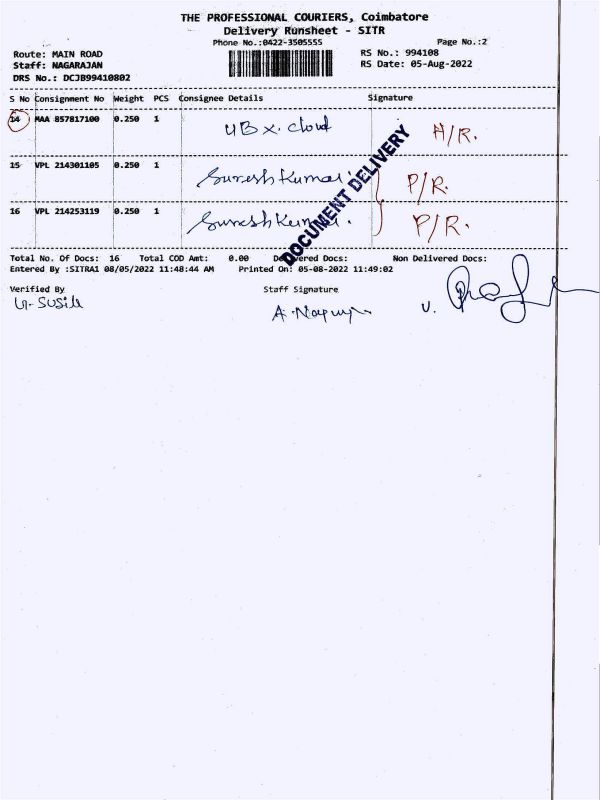 THE PROFESSIONAL COURIERS, Coimbatore
Delivery Runsheet - SITR
Phone No.:0422-3505555 Page No.:2
Route: MAIN ROAD RS No.: 994108
Staff: NAGARAJAN RS Date: 05-Aug-2022
DRS No.: DCJB99410802
S No Consignment No Weight PCS Consignee Details Signature
14 MAA 857817100 0.250 1 UBX. cloud H/R.
15 VPL 214301105 0.250 1 Suresh Kumar. P/R.
16 VPL 214253119 0.250 1 Suresh Kumar. P/R.
DOCUMENT DELIVERY
Total No. Of Docs: 16 Total COD Amt: 0.00 Delivered Docs: Non Delivered Docs:
Entered By :SITRA1 08/05/2022 11:48:44 AM Printed On: 05-08-2022 11:49:02
Verified By Staff Signature